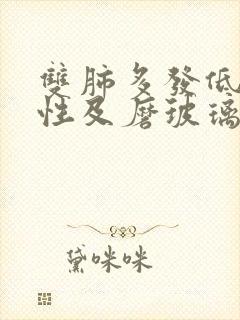 雙肺多發低
性及磨玻璃
黛咪咪